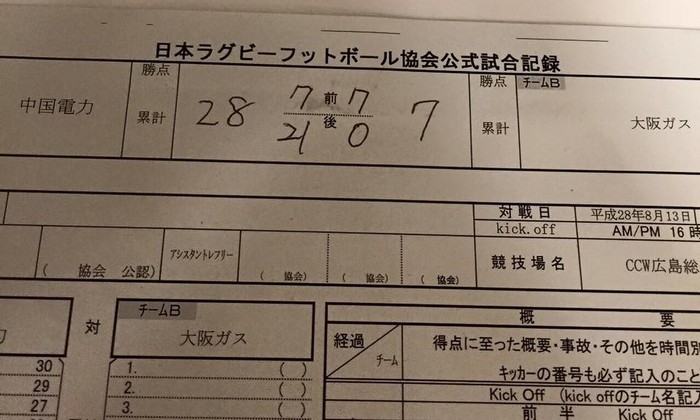 日本ラグビーフットボール協会公式試合記録
中国電力
勝点
累計
28
7 前 7
21 後 0
7
勝点
累計
チームB
大阪ガス
対戦日
平成28年8月13日
kick.off
AM/PM 16時
アシスタントレフリー
競技場名
CCW広島総
( 協会 公認)
( 協会)
( 協会)
( 協会)
対
チームB
大阪ガス
概 要
経過
チーム
得点に至った概要・事故・その他を時間別
キッカーの番号も必ず記入のこと
30
29
27
1. ( )
2. ( )
3. ( )
Kick Off (kick offのチーム名記入
前 半 Kick Off